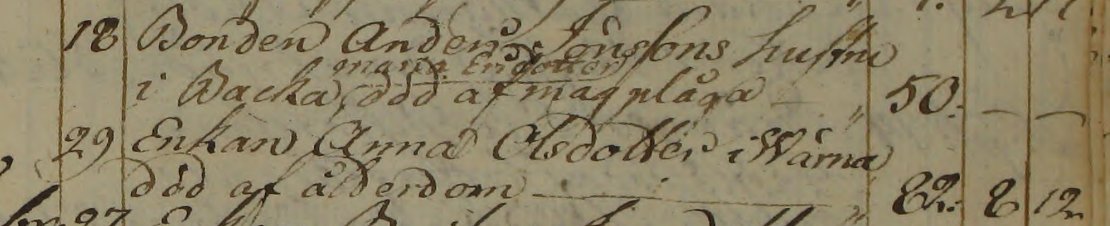 18 Bonden Anders Jönssons hustru
maria Ersdotter
i Backa, död af magplåga — " 50. — —
29 Enkan Anna Olsdotter i Wärna
död af ålderdom — " 82. 8 12
27